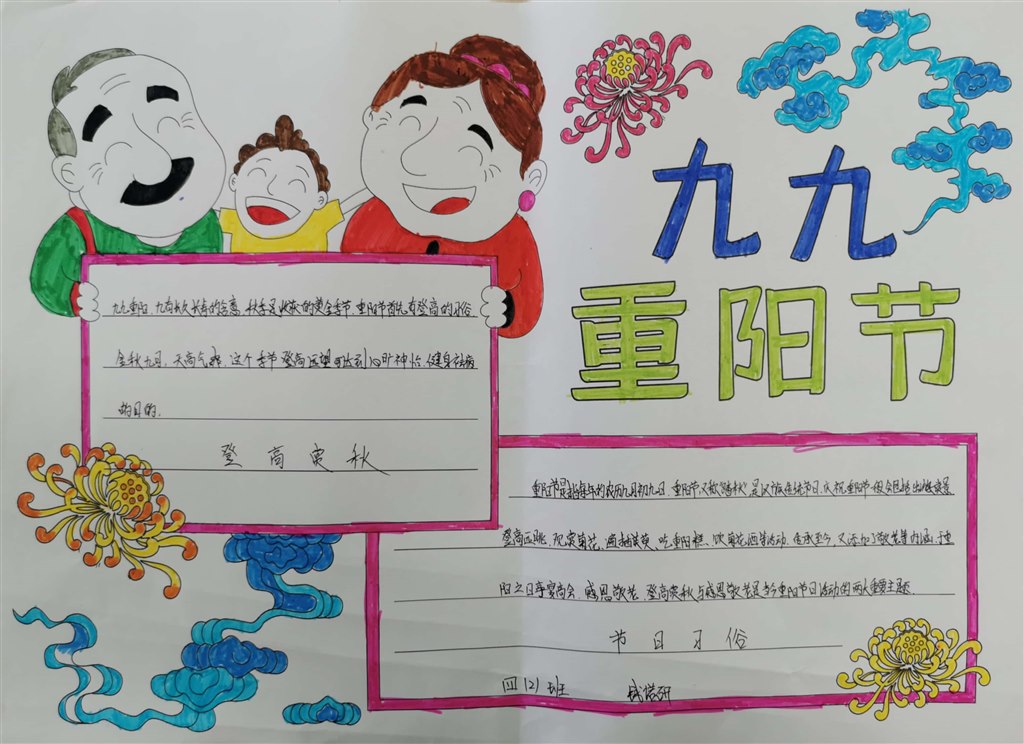 九九
重阳节
九九重阳,九有长久长寿的含意,秋季是收获的黄金季节,重阳节首先有登高的习俗
金秋九月,天高气爽,这个季节登高远望可达到心旷神怡、健身祛病
的目的.
登高赏秋
重阳节是每年的农历九月初九日,重阳节又称"踏秋",是汉族传统节日.庆祝重阳节
登高远眺、观赏菊花、遍插茱萸、吃重阳糕、饮菊花酒等活动.传承至今,又添加了敬老等内涵,于重
阳之日享宴高会,感恩敬老.登高赏秋与感恩敬老是当今重阳节日活动的两大重要主题.
节日习俗
四(2)班